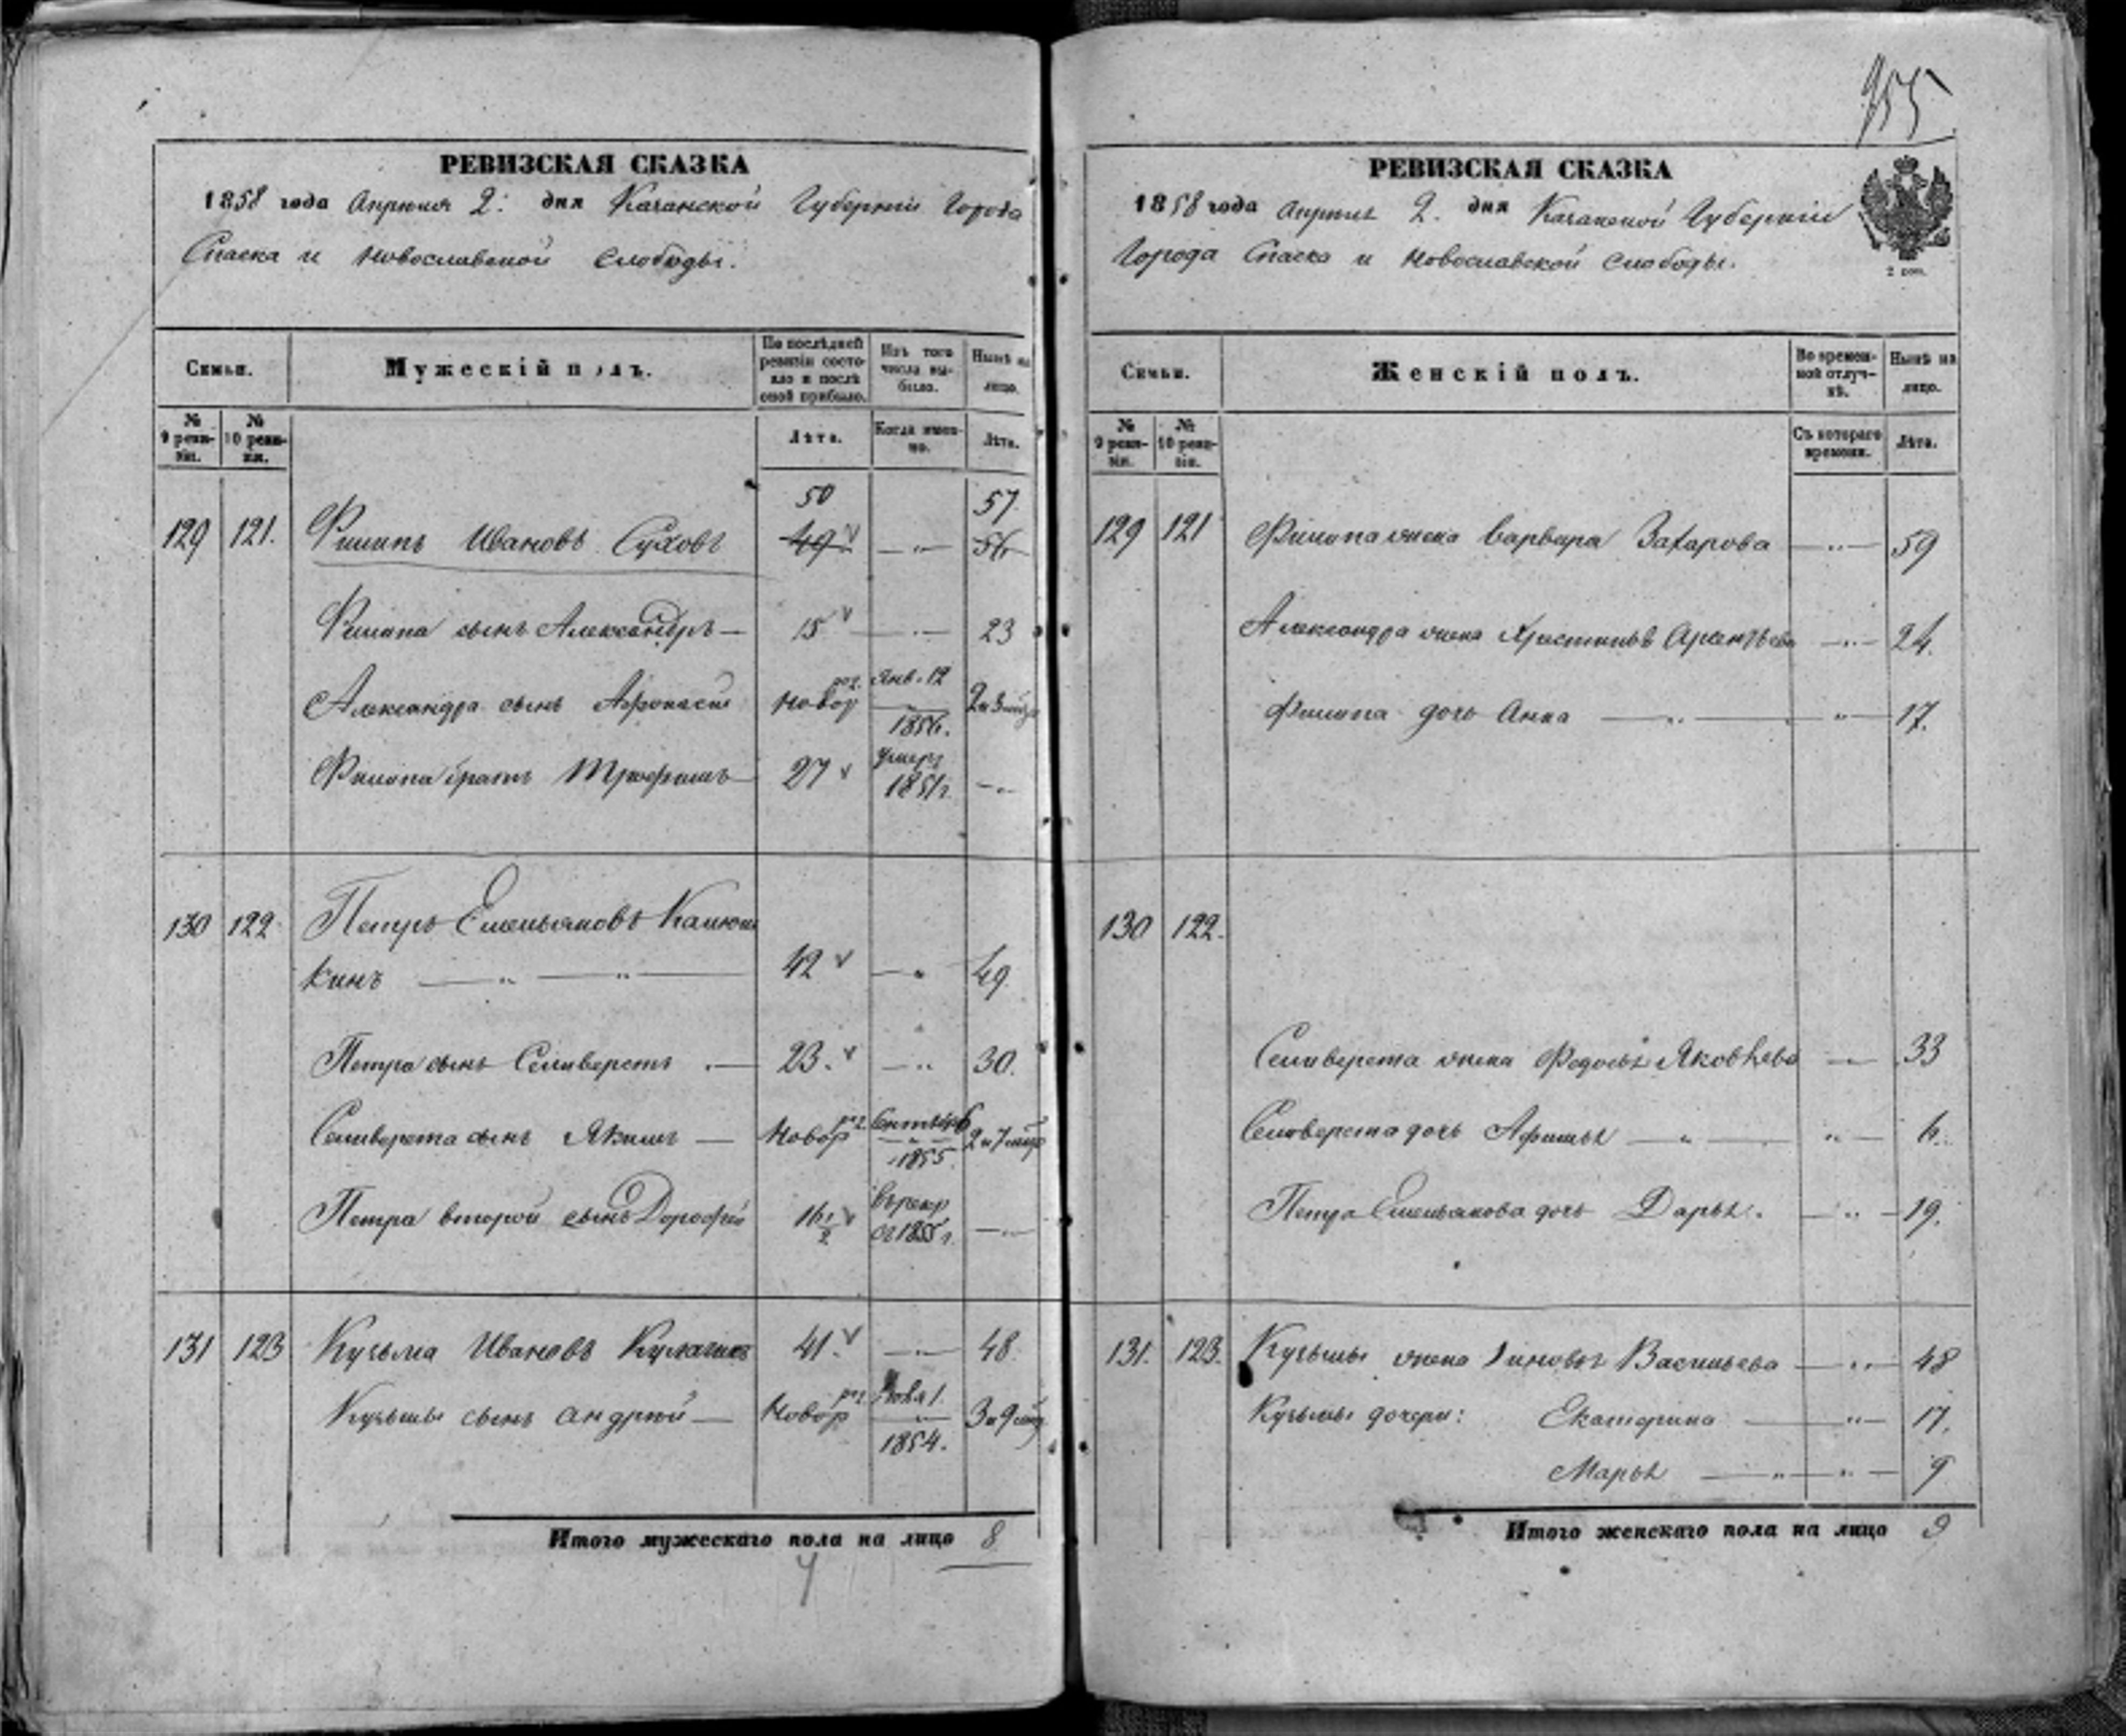 955
РЕВИЗСКАЯ СКАЗКА
1858 года Апреля 2: дня Казанской Губернiи Города
Спаска и Новославской Слободы.
Семьи.
Мужескiй полъ.
По послѣдней ревизiи состояло и послѣ оной прибыло.
Изъ того числа выбыло.
Нынѣ на лицо.
№ 9 ревизiи.
№ 10 ревизiи.
Лѣта.
Когда именно.
Лѣта.
50 57.
129 121. Филипъ Ивановъ Суховъ 49 — „ — 56
Филипа сынъ Александръ — 15 — „ — 23
Александра сынъ Афонасiй Новор роз. Янв. 12 1856. 2 и 3 мѣся
Филипа братъ Трофимъ 27 умеръ 1851 г. — „
130 122. Петръ Емельяновъ Калюш
кинъ — „ — „ — 42 — „ 49.
Петра сынъ Селиверстъ — 23. — „ 30.
Селиверста сынъ Якимъ — Новор роз. 1855. 2 и 7 мѣся
Петра второй сынъ Дорофѣй 16 1/2 въ рекр 1855 г. — „ —
131 123 Кузьма Ивановъ 41. — „ — 48.
Кузьмы сынъ Андрей — Новор роз. 1854. 3 и 9 мѣс
Итого мужескаго пола на лицо 8
РЕВИЗСКАЯ СКАЗКА
1858 года Апреля 2. дня Казанской Губернiи
Города Спаска и Новославской Слободы.
2 коп.
Семьи.
Женскiй полъ.
Во временной отлучкѣ.
Нынѣ на лицо.
№ 9 ревизiи.
№ 10 ревизiи.
Съ котораго времени.
Лѣта.
129 121 Филипа жена Варвара Захарова — „ — 59
Александра жена — „ — 24.
Филипа дочь Анна — „ — „ — 17.
130 122.
Селиверста жена Федосья Яковлева — 33
Селиверста дочь Афимья — „ — „ — 6.
Петра Емельянова дочь Дарья. — „ — 19.
131. 123. Кузьмы жена Зиновья Васильева — „ — 48
Кузьмы дочери: Екатерина — „ — 17.
Марья — „ — „ — 9
Итого женскаго пола на лицо 9